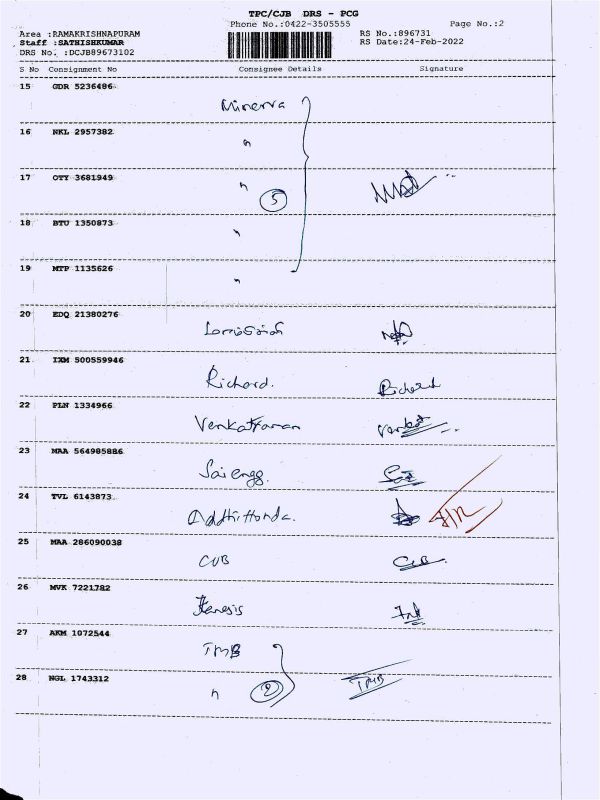 TPC/CJB DRS - PCG
Phone No.:0422-3505555 Page No.:2
Area :RAMAKRISHNAPURAM RS No.:896731
Staff :SATHISHKUMAR RS Date:24-Feb-2022
DRS No. :DCJB89673102
S No Consignment No Consignee Details Signature
15 GDR 5236486 Minerva
16 NKL 2957382 "
17 OTY 3681949 " 5
18 BTU 1350873 "
19 MTP 1135626 "
20 EDQ 21380276
21 IXM 500559946 Richard. Richard
22 PLN 1334966 Venkatraman Venkat
23 MAA 564985886 Sai engg. Sai
24 TVL 6143873 Addhi Honda.
25 MAA 286090038 CUB CUB
26 MVK 7221782
27 AKM 1072544 TMB
28 NGL 1743312 " 2 TMB